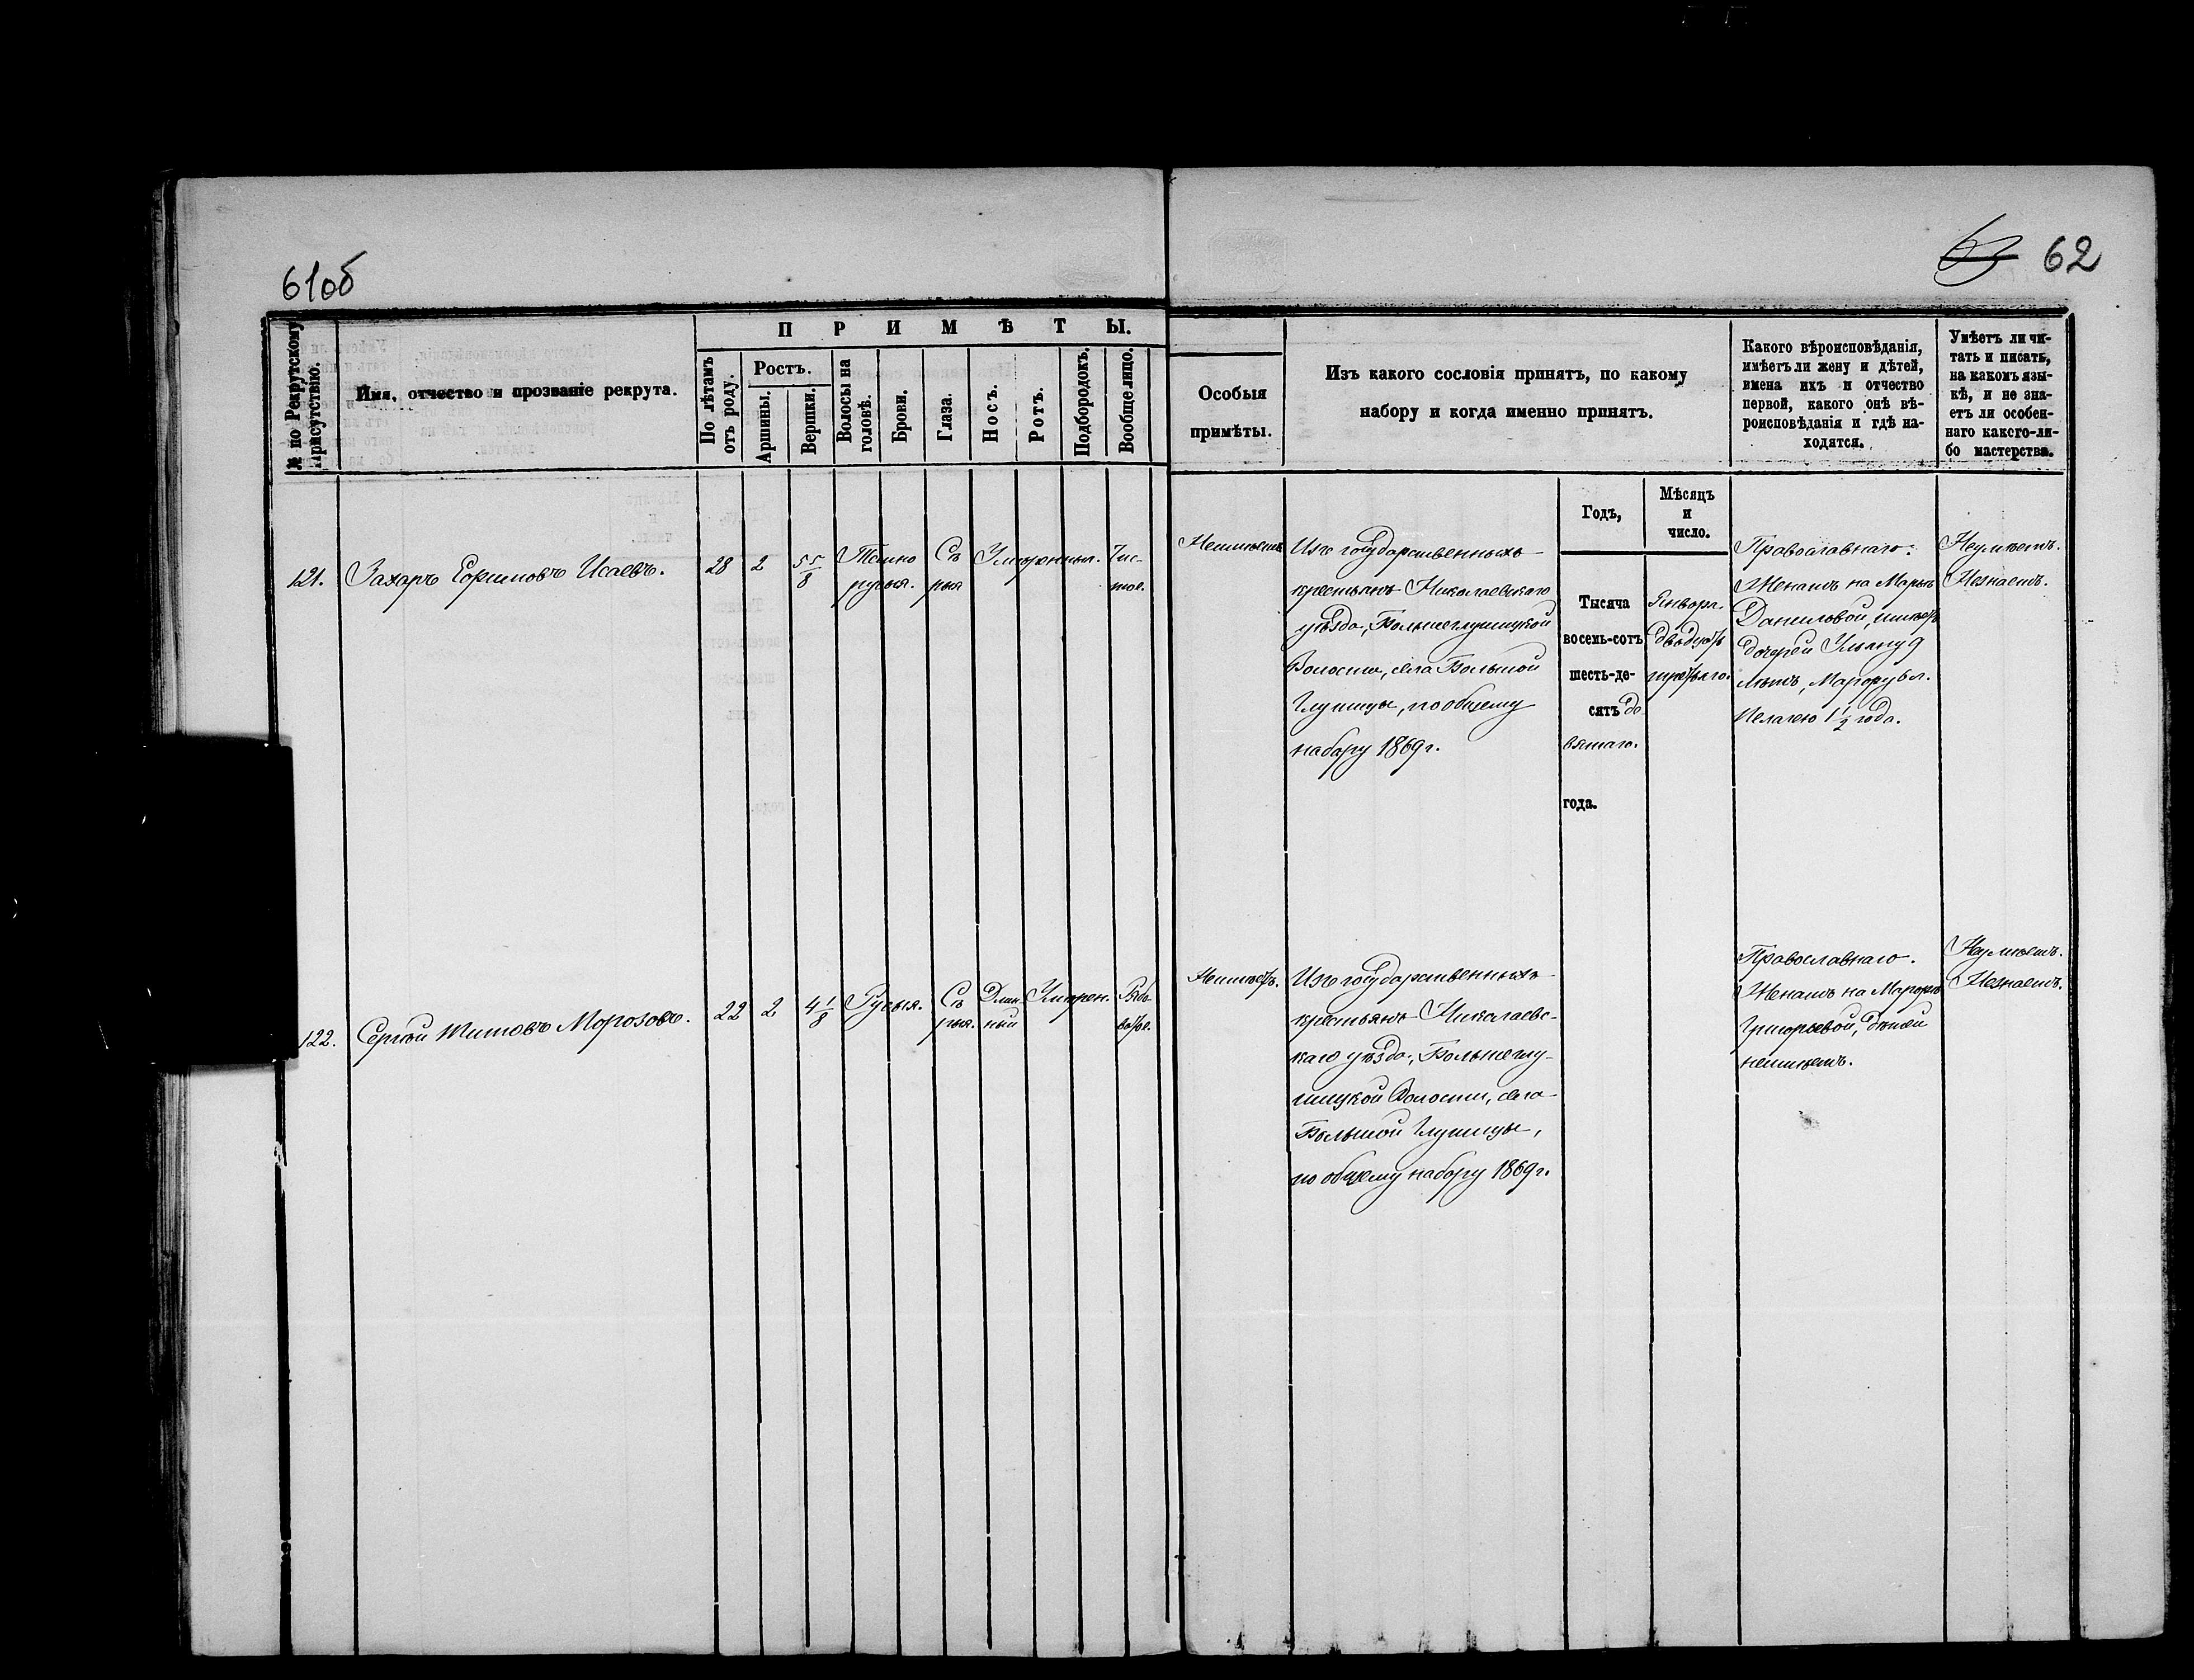 61об
63 62
№ по Рекрутскому
Присутствію.
Имя, отчество и прозваніе рекрута.
ПРИМѢТЫ.
По лѣтамъ
отъ роду.
Ростъ.
Аршины.
Вершки.
Волосы на
головѣ.
Брови.
Глаза.
Носъ.
Ротъ.
Подбородокъ.
Вообще лицо.
Особыя
примѣты.
Изъ какого сословія принятъ, по какому
набору и когда именно принятъ.
Какого вѣроисповѣданія,
имѣетъ ли жену и дѣтей,
имена ихъ и отчество
первой, какого онѣ вѣ-
роисповѣданія и гдѣ на-
ходятся.
Умѣетъ ли чи-
тать и писать,
на какомъ язы-
кѣ, и не зна-
етъ ли особен-
наго какого-ли-
бо мастерства.
Годъ,
Мѣсяцъ
и
число.
121.
Захаръ Ефимовъ Исаевъ.
28
2
5 5/8
Темно
русыя.
Сѣ
рыя
Умѣренныя.
Чис-
тое.
Неимѣетъ
Изъ государственныхъ
крестьянъ Николаевскаго
уѣзда, Большеглушицкой
Волости, села Большой
Глушицы, по общему
набору 1869 г.
Тысяча
восемь-сотъ
шесть-де-
сятъ де
вятаго.
года.
Января.
двадцать
третьяго.
Православнаго.
Женатъ на Марьѣ
Даниловой, имѣетъ
дочерей Ульяну 9
лѣтъ, Марфу 6 л.
Пелагею 1 1/2 года.
Неумѣетъ.
Незнаетъ.
122.
Сергѣй Титовъ Морозовъ.
22
2
4 1/8
Русыя.
Сѣ
рыя.
Длин
ный
Умѣрен.
Рябо
ватое.
Неимѣетъ.
Изъ государственныхъ
крестьянъ Николаевс-
каго уѣзда, Большеглу-
шицкой Волости, села
Большой Глушицы,
по общему набору 1869 г.
Православнаго.
Женатъ на Марфѣ
Григорьевой, дѣтей
неимѣетъ.
Неумѣетъ.
Незнаетъ.